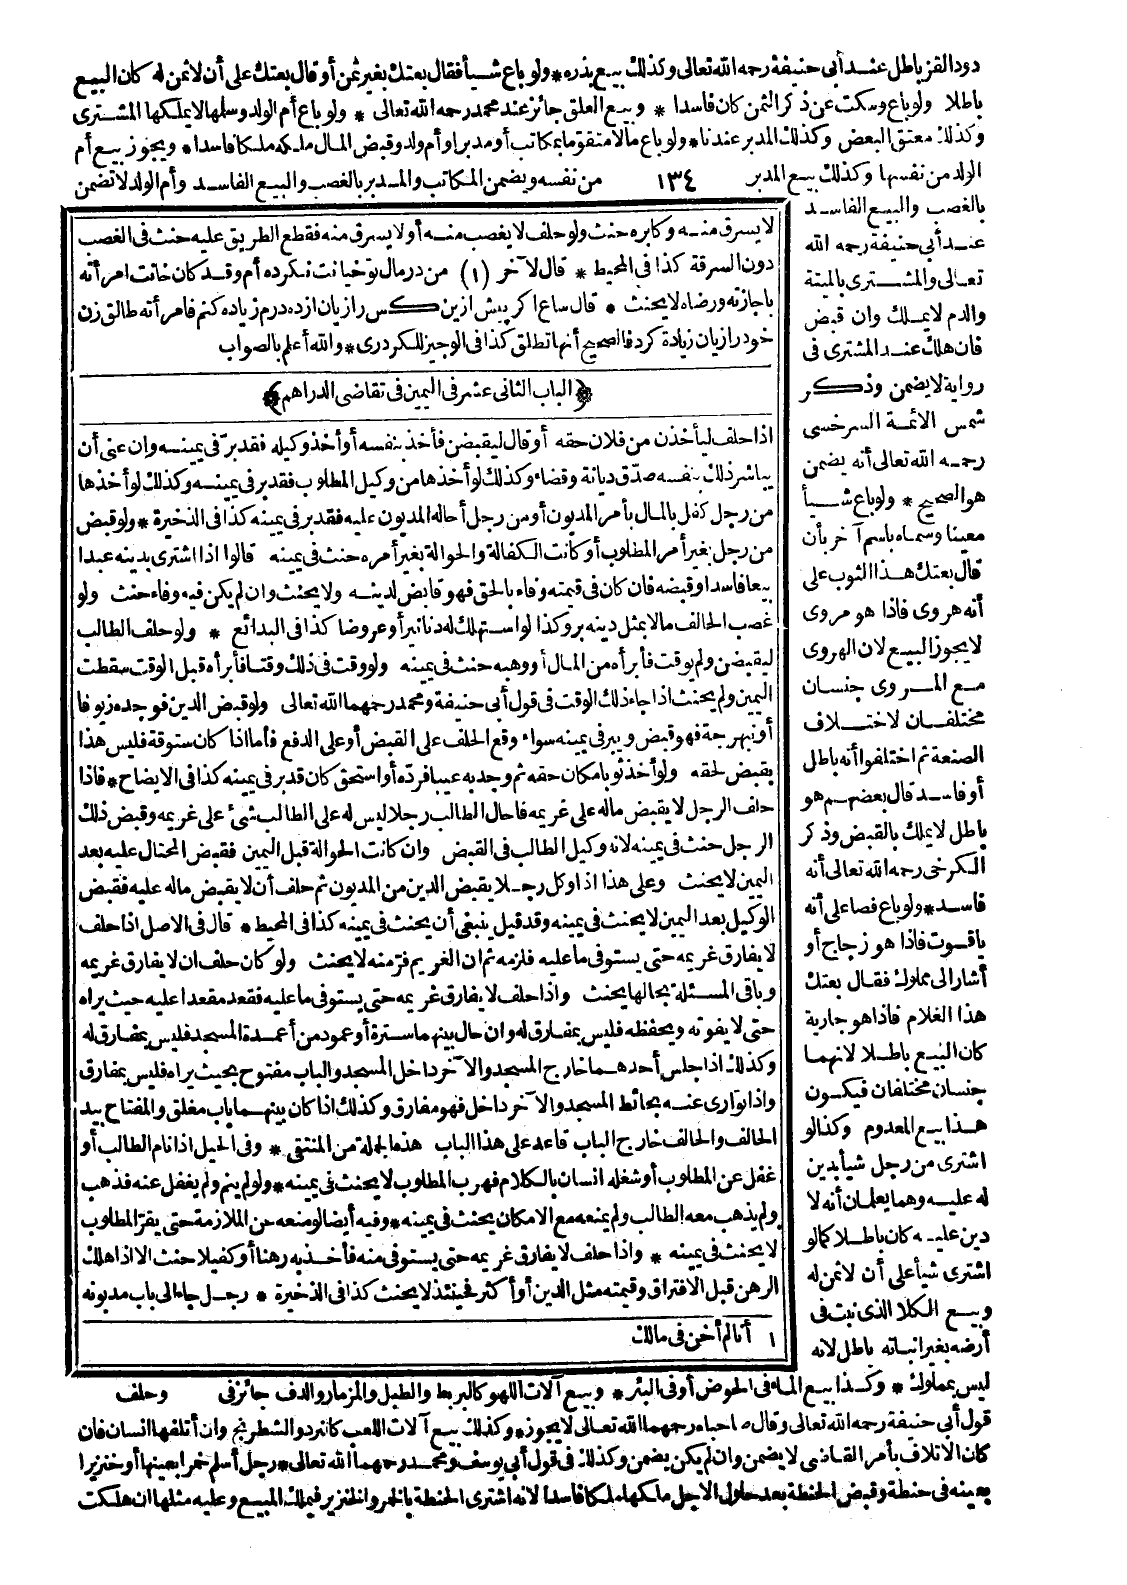 دود القز باطل عند أبي حنيفة رحمه الله تعالى وكذلك بيع بذره * ولو باع شيأ فقال بعتك بغير ثمن أو قال بعتك على أن لا ثمن له كان البيع
باطلا ولو باع وسكت عن ذكر الثمن كان فاسدا * وبيع العلق جائز عند محمد رحمه الله تعالى * ولو باع أم الولد وسلمها لا يملكها المشترى
وكذلك معتق البعض وكذلك المدبر عندنا * ولو باع مالا متقوما بمكاتب أو مدبر أو أم ولد وقبض المال ملكه ملكا فاسدا * ويجوز بيع أم
الولد من نفسها وكذلك بيع المدبر ١٣٤ من نفسه ويضمن المكاتب والمدبر بالغصب والبيع الفاسد وأم الولد لا تضمن
بالغصب والبيع الفاسد
عند أبي حنيفة رحمه الله
تعالى والمشترى بالميتة
والدم لا يملك وان قبض
فان هلك عند المشترى فى
رواية لا يضمن وذكر
شمس الأئمة السرخسى
رحمه الله تعالى أنه يضمن
هو الصحيح * ولو باع شيأ
معينا وسماه باسم آخر بأن
قال بعتك هذا الثوب على
أنه هروى فاذا هو مروى
لا يجوز البيع لان الهروى
مع المروى جنسان
مختلفان لاختلاف
الصنعة ثم اختلفوا أنه باطل
أو فاسد قال بعضهم هو
باطل لا يملك بالقبض وذكر
الكرخى رحمه الله تعالى أنه
فاسد * ولو باع فصا على أنه
ياقوت فاذا هو زجاج أو
أشار الى مملوك فقال بعتك
هذا الغلام فاذا هو جارية
كان البيع باطلا لانهما
جنسان مختلفان فيكون
هذا بيع المعدوم وكذا لو
اشترى من رجل شيأ بدين
له عليه وهما يعلمان أنه لا
دين عليه كان باطلا كما لو
اشترى شيأ على أن لا ثمن له
وبيع الكلا الذى نبت فى
أرضه بغير انباته باطل لانه
لا يسرق منه وكابره حنث ولو حلف لا يغصب منه أو لا يسرق منه فقطع الطريق عليه حنث فى الغصب
دون السرقة كذا فى المحيط * قال لآخر (١) من درمال تو خيانت نكرده أم وقد كان خانت امرأته
باجازته ورضاه لا يحنث * قال ساع اكر پيش ازين كس را زيان ازده درم زياده كنم فامرأته طالق زن
خود را زيان زيادة كرد فالصحيح أنها تطلق كذا فى الوجيز للكردرى * والله أعلم بالصواب
﴿الباب الثانى عشر فى اليمين فى تقاضى الدراهم﴾
اذا حلف ليأخذن من فلان حقه أو قال ليقبضن فأخذ بنفسه أو أخذ وكيله فقد بر فى يمينه وان عنى أن
يباشر ذلك بنفسه صدق ديانة وقضاء وكذلك لو أخذها من وكيل المطلوب فقد بر فى يمينه وكذلك لو أخذها
من رجل كفل بالمال بأمر المديون أو من رجل أحاله المديون عليه فقد بر فى يمينه كذا فى الذخيرة * ولو قبض
من رجل بغير أمر المطلوب أو كانت الكفالة والحوالة بغير أمره حنث فى يمينه قالوا اذا اشترى بدينه عبدا
بيعا فاسدا وقبضه فان كان فى قيمته وفاء بالحق فهو قابض لدينه ولا يحنث وان لم يكن فيه وفاء حنث ولو
غصب الحالف مالا بمثل دينه بر وكذا لو استهلك له دنانير أو عروضا كذا فى البدائع * ولو حلف الطالب
ليقبضن ولم يوقت فأبرأه من المال أو وهبه حنث فى يمينه ولو وقت فى ذلك وقتا فأبرأه قبل الوقت سقطت
اليمين ولم يحنث اذا جاء ذلك الوقت فى قول أبي حنيفة ومحمد رحمهما الله تعالى ولو قبض الدين فوجده زيوفا
أو نبهرجة فهو قبض ويبر فى يمينه سواء وقع الحلف على القبض أو على الدفع فأما اذا كان ستوقة فليس هذا
يقبض لحقه ولو أخذ ثوبا مكان حقه ثم وجد به عيبا فرده أو استحق كان قد بر فى يمينه كذا فى الايضاح * فاذا
حلف الرجل لا يقبض ماله على غريمه فاحال الطالب رجلا ليس له على الطالب شئ على غريمه وقبض ذلك
الرجل حنث فى يمينه لانه وكيل الطالب فى القبض وان كانت الحوالة قبل اليمين فقبض المحتال عليه بعد
اليمين لا يحنث وعلى هذا اذا وكل رجلا بقبض الدين من المديون ثم حلف أن لا يقبض ماله عليه فقبض
الوكيل بعد اليمين لا يحنث فى يمينه وقد قيل ينبغى أن يحنث فى يمينه كذا فى المحيط * قال فى الاصل اذا حلف
لا يفارق غريمه حتى يستوفى ما عليه فلزمه ثم ان الغريم فر منه لا يحنث ولو كان حلف ان لا يفارق غريمه
وباقى المسئلة بحالها يحنث واذا حلف لا يفارق غريمه حتى يستوفى ما عليه فقعد مقعدا عليه حيث يراه
حتى لا يفوته ويحفظه فليس بمفارق له وان حال بينهما سترة أو عمود من أعمدة المسجد فليس بمفارق له
وكذلك اذا جلس أحدهما خارج المسجد والآخر داخل المسجد والباب مفتوح بحيث يراه فليس بمفارق
واذا توارى عنه بحائط المسجد والآخر داخل فهو مفارق وكذلك اذا كان بينهما باب مغلق والمفتاح بيد
الحالف والحالف خارج الباب قاعد على هذا الباب هذه الجملة من المنتقى * وفى الحيل اذا نام الطالب أو
غفل عن المطلوب أو شغله انسان بالكلام فهرب المطلوب لا يحنث فى يمينه * ولو لم ينم ولم يغفل عنه فذهب
ولم يذهب معه الطالب ولم يمنعه مع الامكان يحنث فى يمينه * وفيه أيضا لو منعه عن الملازمة حتى يفر المطلوب
لا يحنث فى يمينه * واذا حلف لا يفارق غريمه حتى يستوفى منه فأخذ به رهنا أو كفيلا حنث الا اذا هلك
الرهن قبل الافتراق وقيمته مثل الدين أو أكثر فحينئذ لا يحنث كذا فى الذخيرة * رجل جاء الى باب مديونه
١ أنا لم أخن فى مالك
وحلف
ليس بمملوك * وكذا بيع الماء فى الحوض أو فى البئر * وبيع آلات اللهو كالبربط والطبل والمزمار والدف جائز فى
قول أبي حنيفة رحمه الله تعالى وقال صاحباه رحمهما الله تعالى لا يجوز * وكذلك بيع آلات اللعب كالنرد والشطرنج وان أتلفها انسان فان
كان الاتلاف بأمر القاضى لا يضمن وان لم يكن يضمن وكذلك فى قول أبي يوسف ومحمد رحمهما الله تعالى * رجل أسلم خمرا بعينها أو خنزيرا
بعينه فى حنطة وقبض الحنطة بعد حلول الاجل ملكها ملكا فاسدا لانه اشترى الحنطة بالخمر والخنزير فيملك المبيع وعليه مثلها ان هلكت